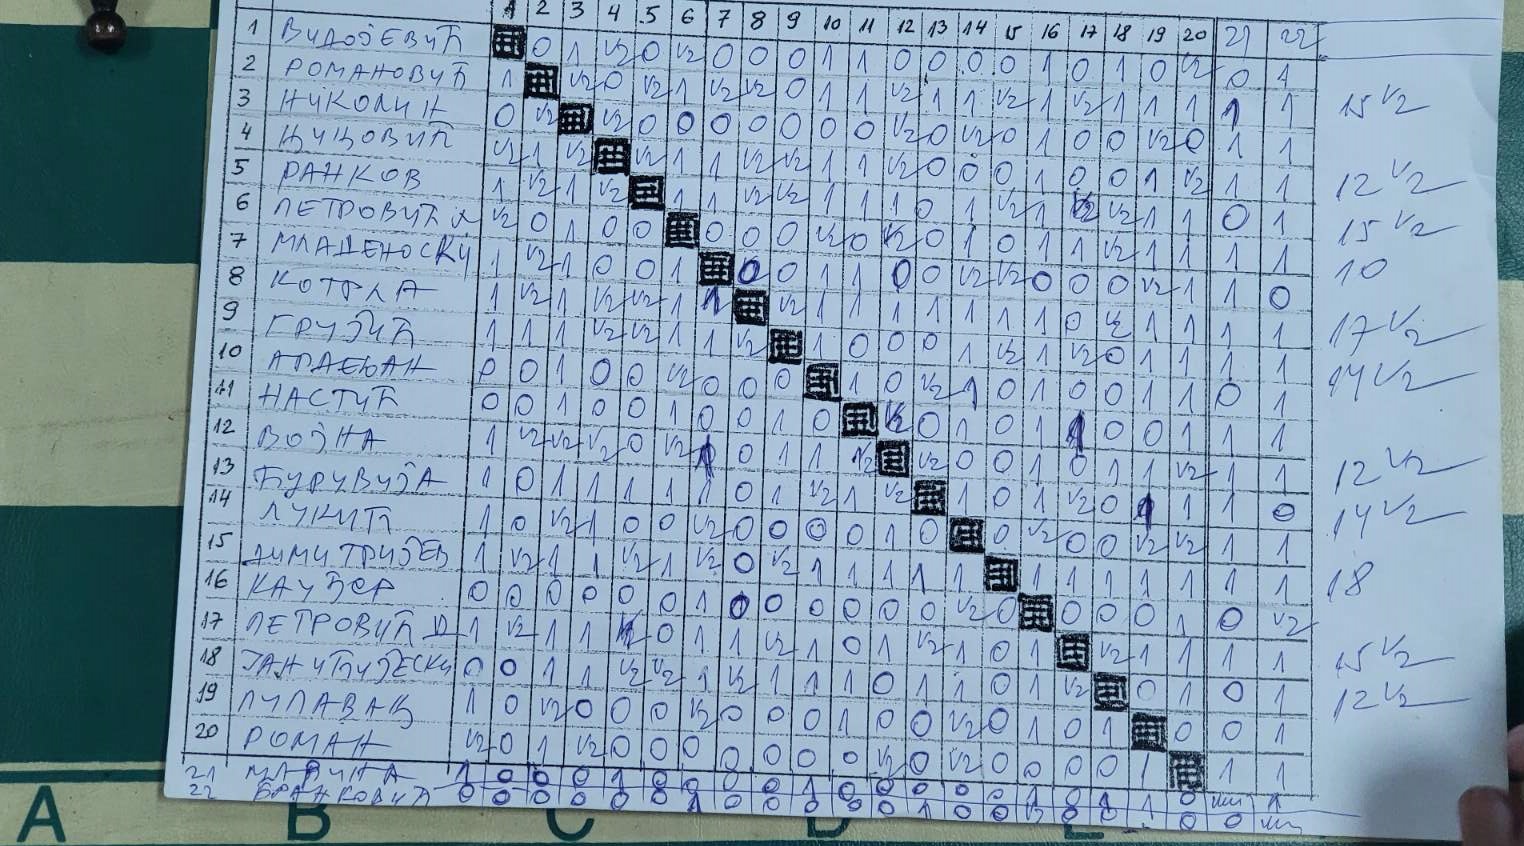 1 2 3 4 5 6 7 8 9 10 11 12 13 14 15 16 17 18 19 20 21 22
1 ВИДОЈЕВИЋ 0 1 1/2 0 1/2 0 0 0 1 1 0 0 0 0 1 0 1 0 1/2 0 1
2 РОМАНОВИЋ 1 1/2 0 1/2 1 1/2 1/2 0 1 1 1/2 1 1 1/2 1 1/2 1 1 1 1 1 15 1/2
3 НИКОЛИН 0 1/2 1/2 0 0 0 0 0 0 0 1/2 0 1/2 0 1 0 0 1/2 0 1 1
4 ЦИЦОВИЋ 1/2 1 1/2 1/2 1 1 1/2 1/2 1 1 1/2 0 0 0 1 0 0 1 1/2 1 1 12 1/2
5 РАНКОВ 1 1/2 1 1/2 1 1 1/2 1/2 1 1 1 0 1 1/2 1 1/2 1/2 1 1 0 1 15 1/2
6 ПЕТРОВИЋ 1/2 0 1 0 0 0 0 0 1/2 0 1/2 0 1 0 1 1 1/2 1 1 1 1 10
7 МЛАДЕНОСКИ 1 1/2 1 0 0 1 0 0 1 1 0 0 1/2 1/2 0 0 0 1/2 1 1 0
8 КОТРЛА 1 1/2 1 1/2 1/2 1 1 1/2 1 1 1 1 1 1 1 0 1/2 1 1 1 1 17 1/2
9 ГРУЈИЋ 1 1 1 1/2 1/2 1 1 1/2 1 0 0 0 1 1/2 1 1/2 0 1 1 1 1 14 1/2
10 АРДЕЉАН 0 0 1 0 0 1/2 0 0 0 1 0 1/2 1 0 1 0 0 1 1 0 1
11 НАСТИЋ 0 0 1 0 0 1 0 0 1 0 1/2 0 1 0 1 1 0 0 1 1 1
12 ВОЈНА 1 1/2 1/2 1/2 0 1/2 1 0 1 1 1/2 1/2 0 0 1 0 1 1 1/2 1 1 12 1/2
13 ЂУРУВИЈА 1 0 1 1 1 1 1 0 1 1/2 1 1/2 1 0 1 1/2 0 1 1 1 0 14 1/2
14 ЛУКИЋ 1 0 1/2 1 0 0 1/2 0 0 0 0 1 0 0 1/2 0 0 1/2 1/2 1 1
15 ДИМИТРИЈЕВ 1 1/2 1 1 1/2 1 1/2 0 1/2 1 1 1 1 1 1 1 1 1 1 1 1 18
16 0 0 0 0 0 0 1 0 0 0 0 0 0 1/2 0 0 0 0 1 0 1/2
17 ПЕТРОВИЋ Д 1 1/2 1 1 1/2 0 1 1 1/2 1 0 1 1/2 1 0 1 1/2 1 1 1 1 15 1/2
18 ЈАНИЋИЈЕСКИ 0 0 1 1 1/2 1/2 1 1/2 1 1 1 0 1 1 0 1 1/2 0 1 0 1 12 1/2
19 ЛУЛАВАЦ 1 0 1/2 0 0 0 1/2 0 0 0 1 0 0 1/2 0 1 0 1 0 0 1
20 РОМАН 1/2 0 1 1/2 0 0 0 0 0 0 0 1/2 0 1/2 0 0 0 0 1 1 1
21 1 0 0 0 1 0 0 0 0 1 0 0 0 0 0 1 0 1 1 0 1
22 БРАНКОВИЋ 0 0 0 0 0 0 1 0 0 0 0 0 1 0 0 1/2 0 0 0 0
A B C D E